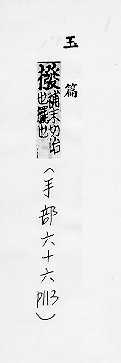 玉篇
撥補末切治
也䇏也
(手部六十六
P113)